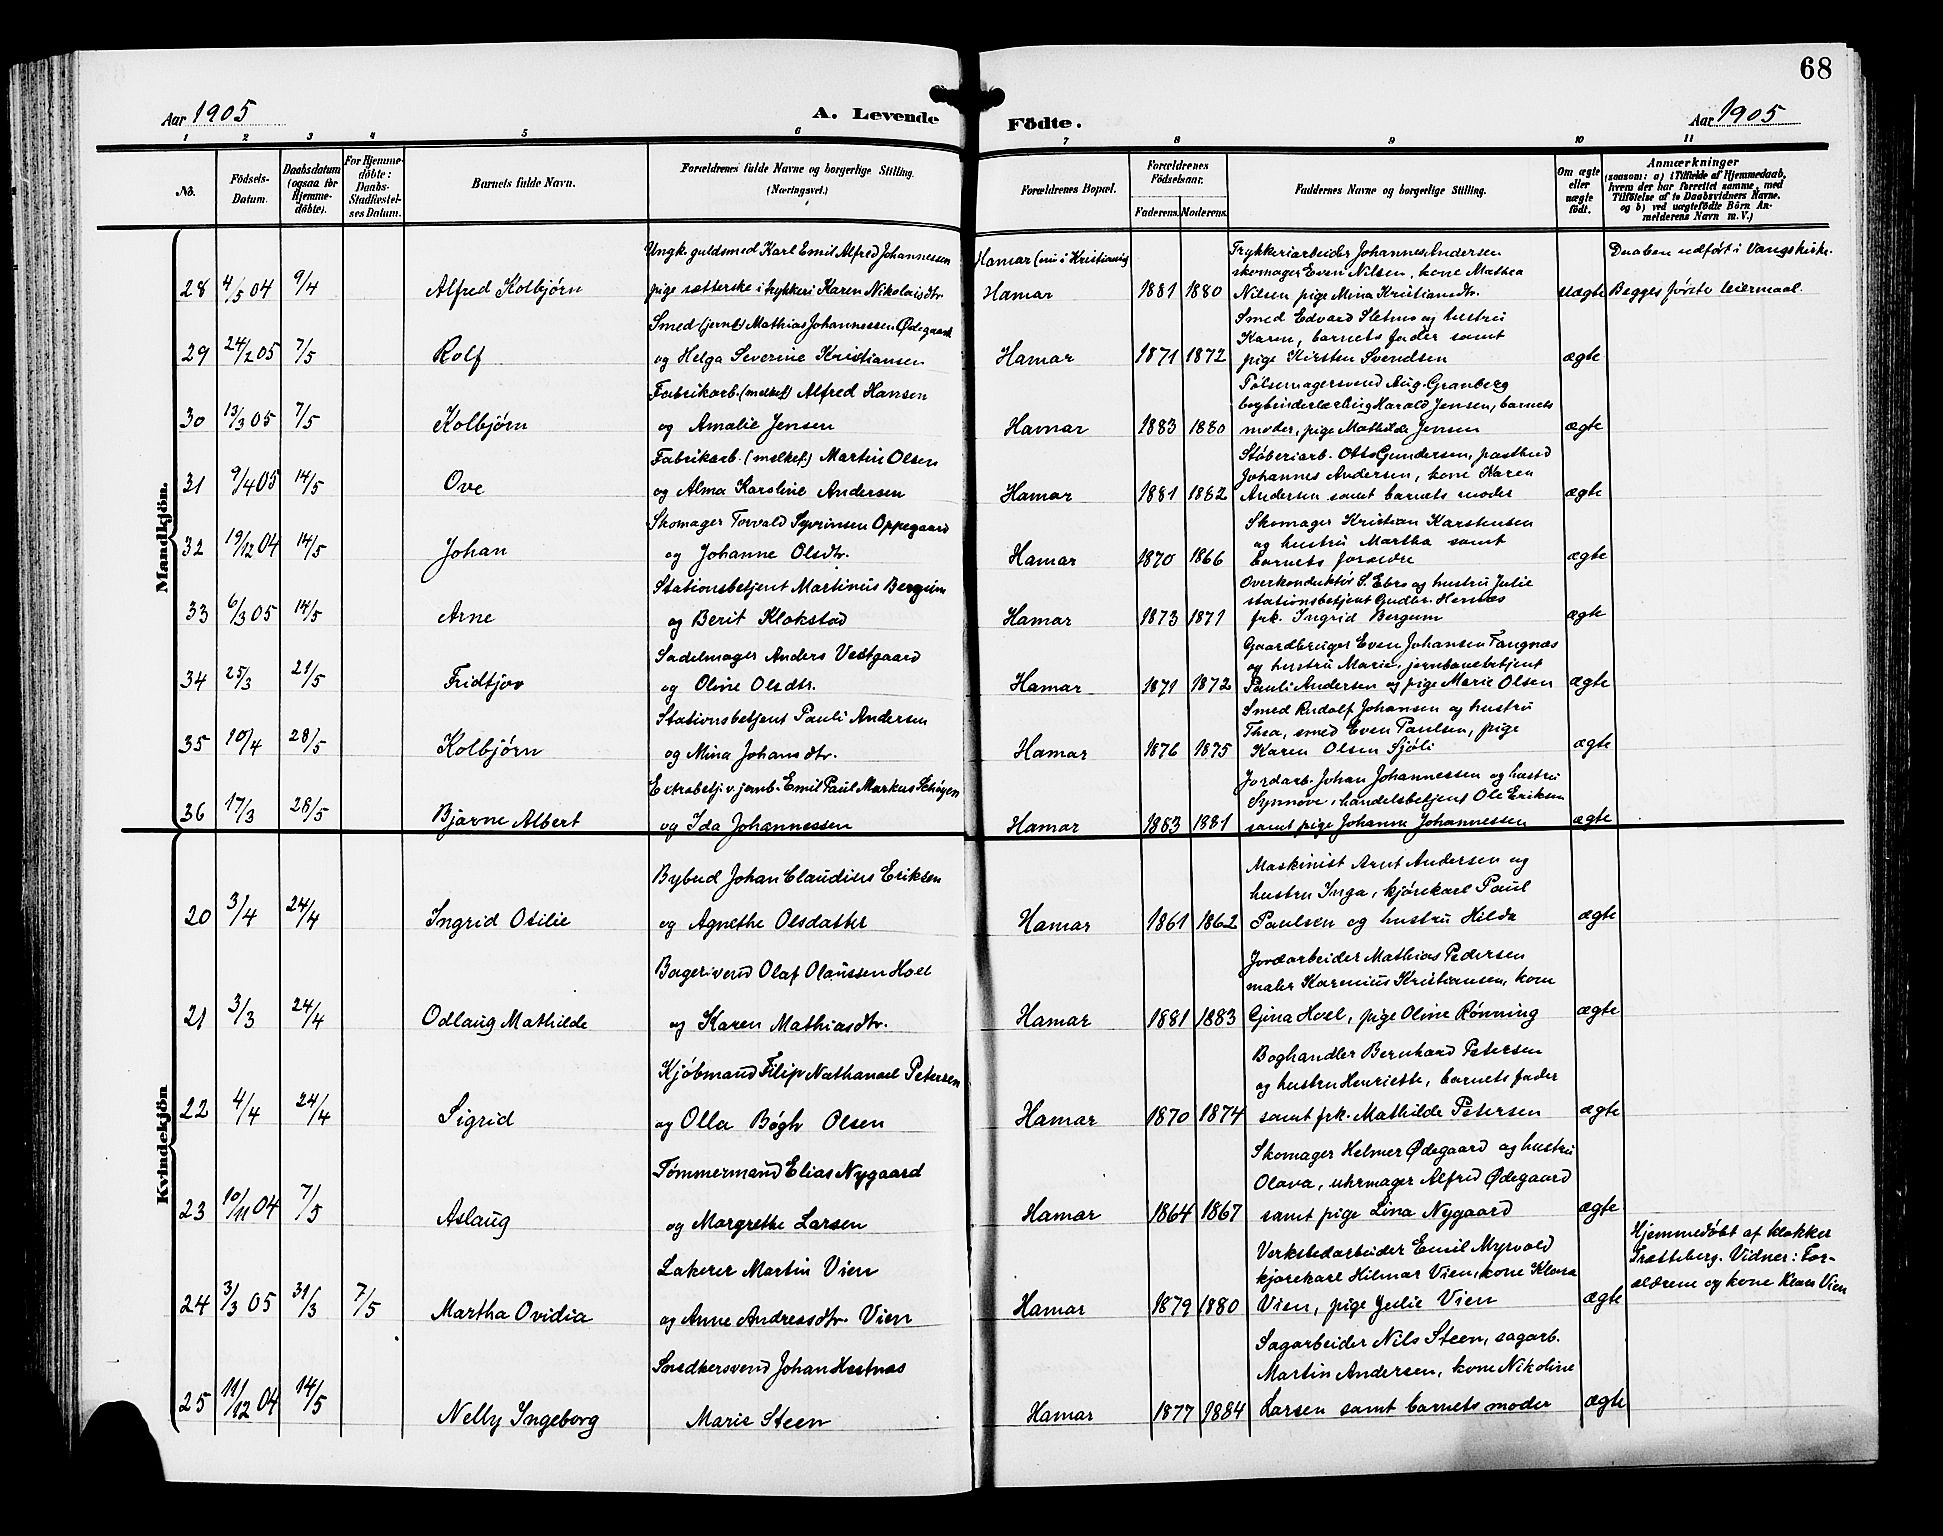 68
Aar 1905
A. Levende
Födte.
Aar 1905
1 2 3 4 5 6 7 8 9 10 11
No.
Födsels-
Datum.
Daabsdatum
(ogsaa för
Hjemme-
döbte).
For Hjemme-
döbte:
Daabs-
Stadfestel-
ses Datum.
Barnets fulde Navn.
Forældrenes fulde Navne og borgerlige Stilling.
(Næringsvei.)
Forældrenes Bopæl.
Forældrenes
Födselsaar.
Faderens. Moderens.
Faddernes Navne og borgerlige Stilling.
Om ægte
eller
uægte
födt.
Anmærkninger
(saasom: a) i Tilfælde af Hjemmedaab,
hvem der har forrettet samme, med
Tilföielse af to Daabsvidners Navne.
og b) ved uægtefödte Börn An-
melderens Navn m. V.)
Mandkjön.
Ungk. guldsmed Karl Emil Alfred Johannessen
Hamar (nu i Kristiania)
Trykkeriarbeider Johannes Andersen
Daaben udført i Vangs kirke.
skomager Even Nilsen, kone Mathea
28 4/5 04 9/4 Alfred Kolbjørn pige sætterske i trykkeri Karen Nikolaisdtr. Hamar 1881 1880 Nilsen pige Mina Kristiansdtr. uægte Begges første leiermaal.
Smed (jernb.) Mathias Johannessen Ødegaard
Smed Edvard Sletmo og hustru
Karen, barnets fader samt
29 24/2 05 7/5 Rolf og Helga Severine Kristiansen Hamar 1871 1872 pige Kirsten Svendsen ægte
Fabrikarb. (melkef.) Alfred Hansen
Pølsemagersvend Aug. Granberg
bogbinderlærling Harald Jensen, barnets
30 13/3 05 7/5 Kolbjørn og Amalie Jensen Hamar 1883 1880 moder, pige Mathilde Jensen ægte
Fabrikarb. (melkef.) Martin Olsen
Støberiarb. Otto Gundersen, postbud
Johannes Andersen, kone Karen
31 9/4 05 14/5 Ove og Alma Karoline Andersen Hamar 1881 1882 Andersen samt barnets moder ægte
Skomager Torvald Syvrinsen Oppegaard
Skomager Kristian Karstensen
og hustru Martha samt
32 19/12 04 14/5 Johan og Johanne Olsdtr. Hamar 1870 1866 barnets forældre ægte
Stationsbetjent Martinius Bergum
Overkonduktør S. Ebro og hustru Julie
stationsbetjent Gudbr. Hernæs
33 6/3 05 14/5 Arne og Berit Klokstad Hamar 1873 1871 frk. Ingrid Bergum ægte
Sadelmager Anders Vestgaard
Gaardbruger Even Johansen Fangnæs
og hustru Marie, jernbanebetjent
34 25/3 21/5 Fridtjov og Oline Olsdtr. Hamar 1871 1872 Pauli Andersen og pige Marie Olsen ægte
Stationsbetjent Pauli Andersen
Smed Rudolf Johansen og hustru
Thea, smed Even Paulsen, pige
35 10/4 28/5 Kolbjørn og Mina Johansdtr. Hamar 1876 1875 Karen Olsen Sjøli ægte
Extrabetj. v. jernb. Emil Paul Markus Schøyen
Jordarb. Johan Johannessen og hustru
Synnøve, handelsbetjent Ole Eriksen
36 17/3 28/5 Bjarne Albert og Ida Johannessen Hamar 1883 1881 samt pige Johanne Johannessen ægte
Kvindekjön
Bybud Johan Claudius Eriksen
Maskinist Arnt Andersen og
hustru Inga, kjørekarl Paul
20 3/4 24/4 Ingrid Otilie og Agnethe Olsdatter Hamar 1861 1862 Paulsen og hustru Hilda ægte
Bagersvend Olaf Olaussen Hoel
Jordarbeider Mathias Pedersen
maler Karenius Kristiansen, kone
21 3/3 24/4 Odlaug Mathilde og Karen Mathiasdtr. Hamar 1881 1883 Gina Hoel, pige Oline Rønning ægte
Kjøbmand Filip Nathanael Petersen
Boghandler Bernhard Petersen
og hustru Henriette, barnets fader
22 4/4 24/4 Sigrid og Olla Bøgh Olsen Hamar 1870 1874 samt frk. Mathilde Petersen ægte
Tømmermand Elias Nygaard
Skomager Helmer Ødegaard og hustru
Olava, uhrmager Alfred Ødegaard
23 10/11 04 7/5 Aslaug og Margrethe Larsen Hamar 1864 1867 samt pige Lina Nygaard ægte
Lakerer Martin Vien
Verkstedarbeider Emil Myrvold
kjørekarl Hilmar Vien, kone Klara
Hjemmedøbt af klokker
Trætteberg. Vidner: For-
ældrene og kone Klara Vien
24 3/3 05 31/3 7/5 Martha Ovidia og Anne Andreasdtr. Vien Hamar 1879 1880 Vien, pige Julie Vien ægte
Snedkersvend Johan Hestnæs
Sagarbeider Nils Steen, sagarb.
Martin Andersen, kone Nikoline
25 11/12 04 14/5 Nelly Ingeborg Marie Steen Hamar 1877 1884 Larsen samt barnets moder ægte